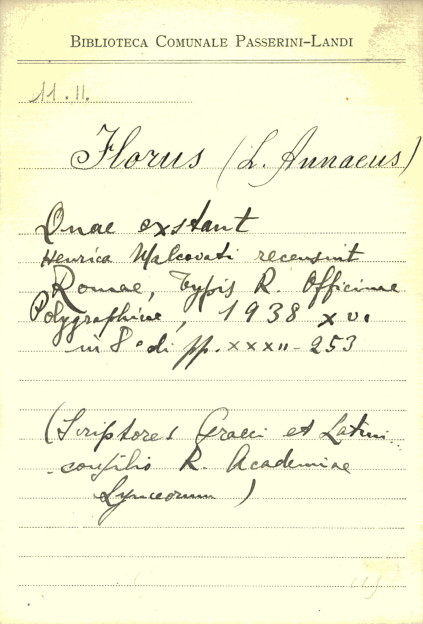 BIBLIOTECA COMUNALE PASSERINI-LANDI
11.11.
Florus (L. Annaeus)
Quae exstant
Henrica Malcovati recensuit
Romae, Typis R. Officinae
Polygraphicae, 1938 XVI
in 8° di pp. XXXII-253
(Scriptores Graeci et Latini
consilio R. Academiae
Lynceorum)